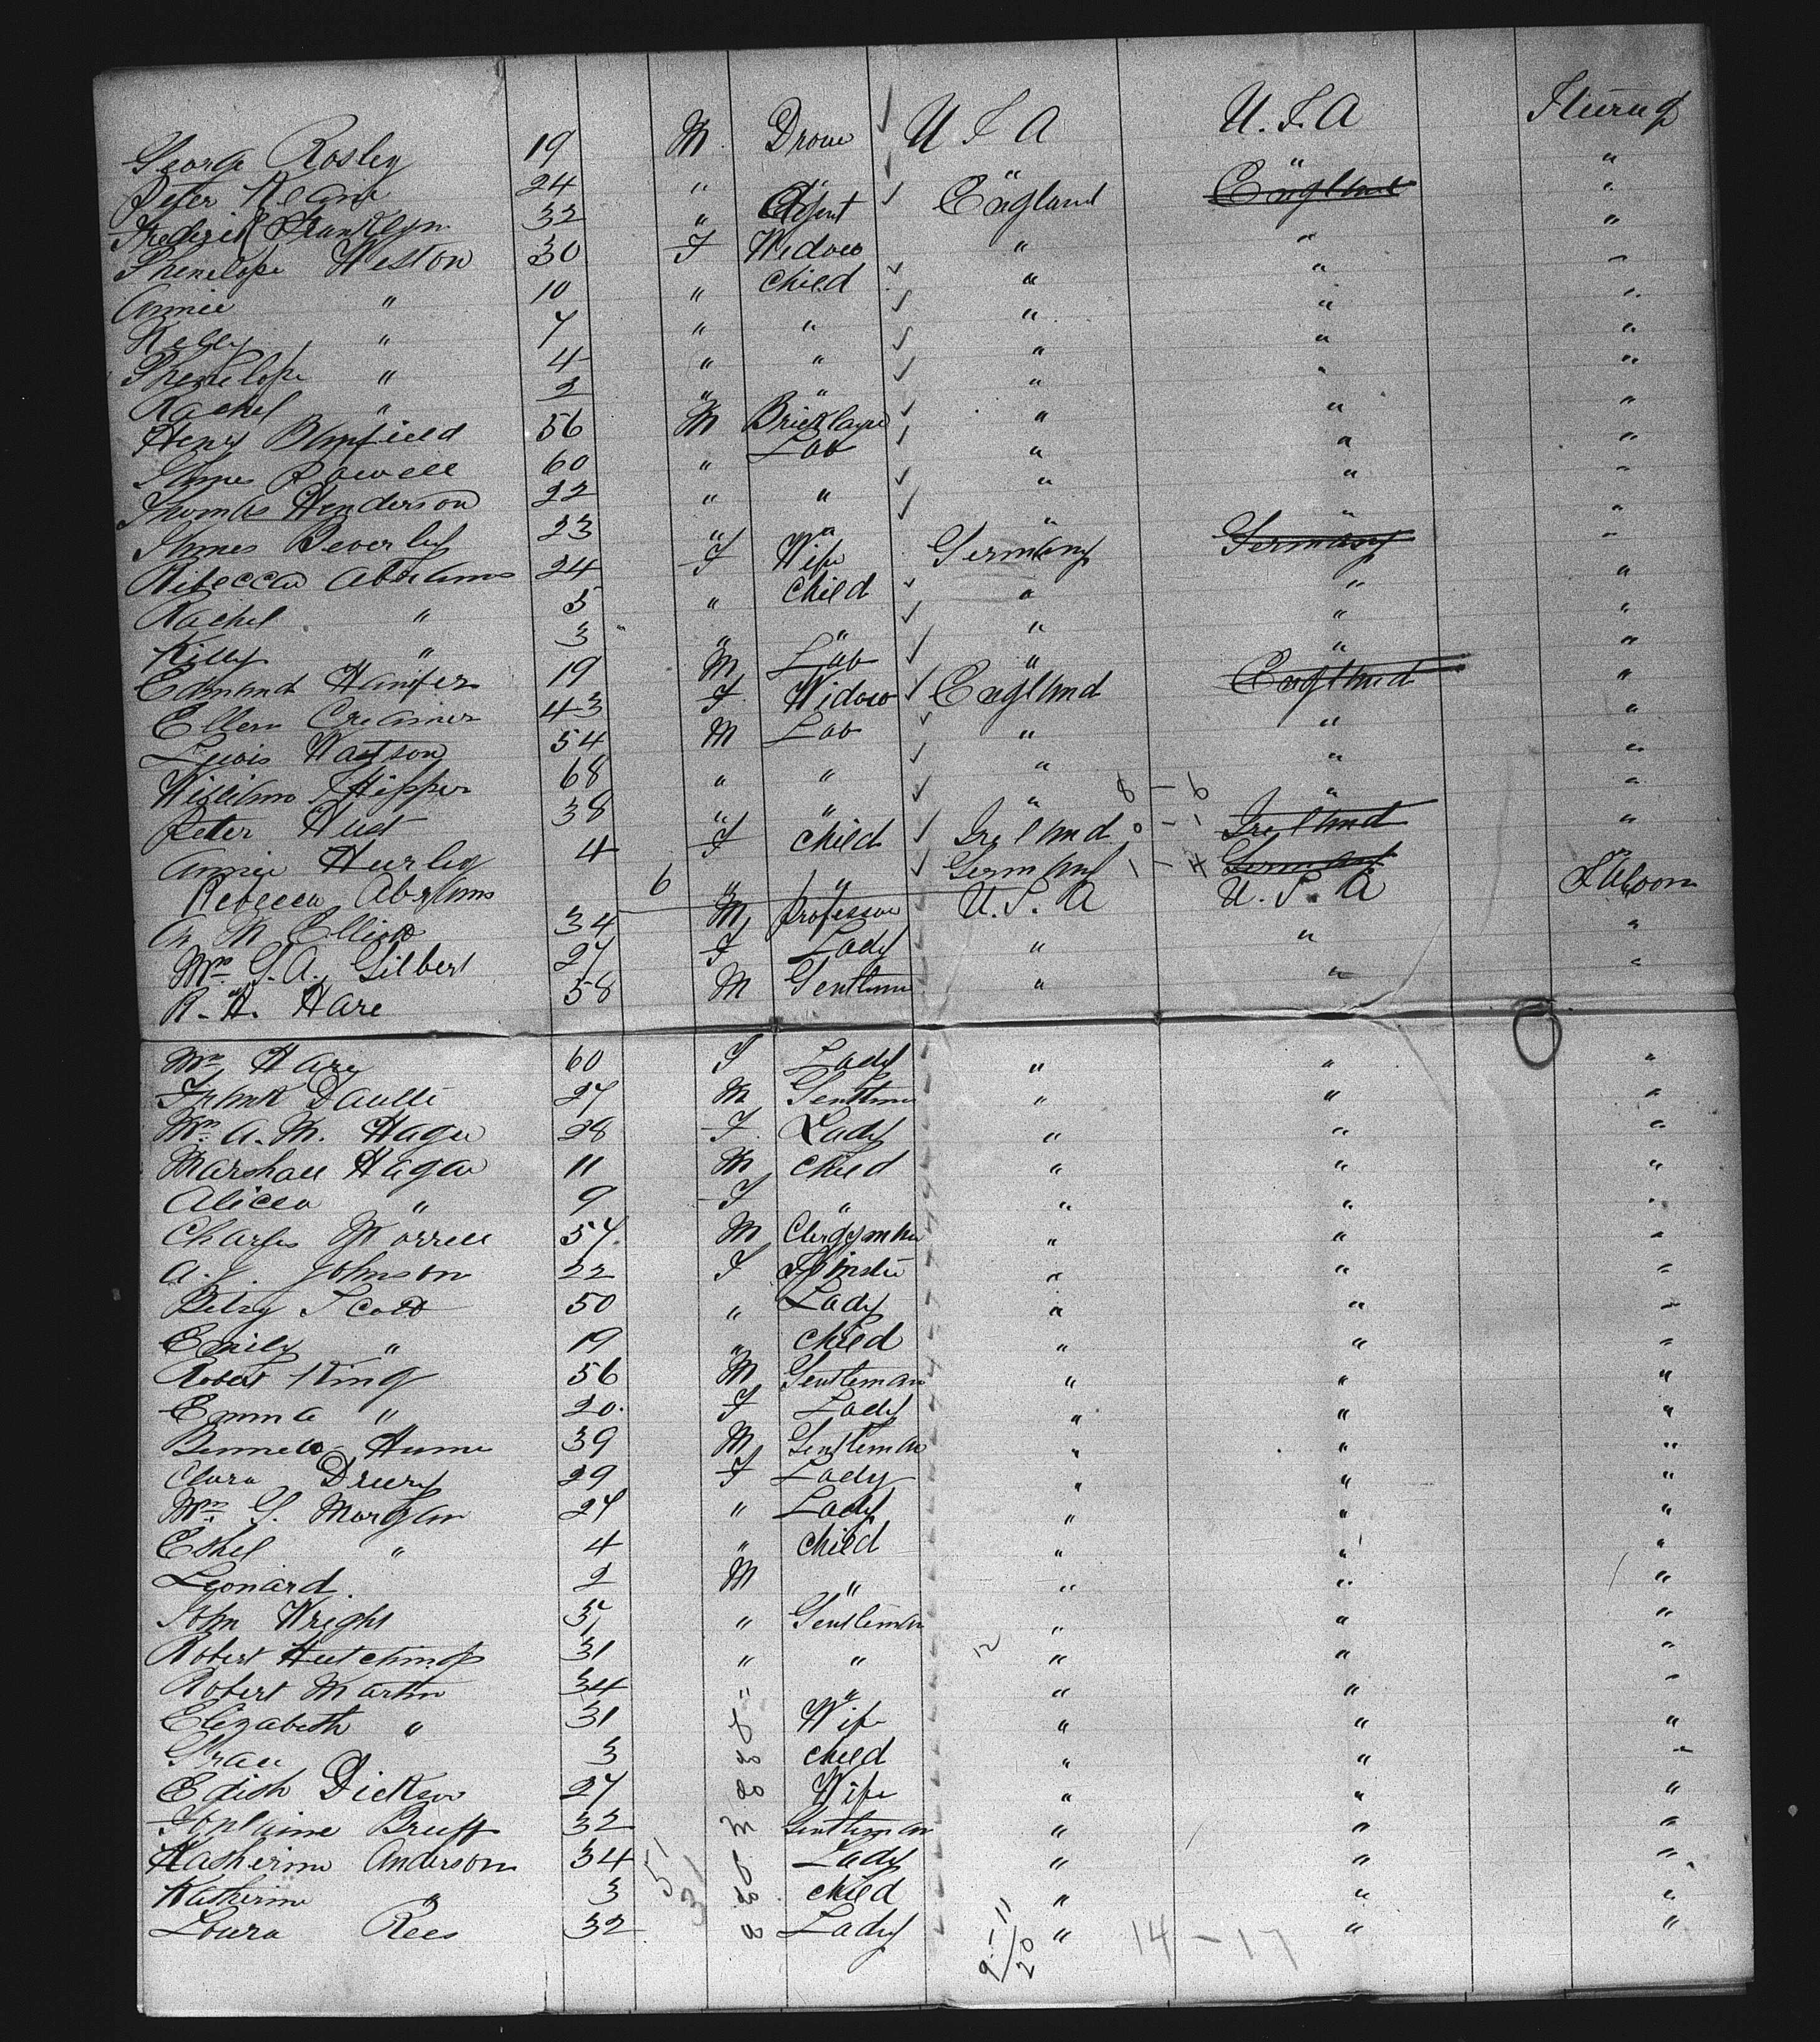 George Rosley 19 M Drove U S A U.S.A Steerag
Peter Keane 24 " " " " "
Frederick Franklyn 32 " Agent England England "
Phenelope Weston 30 F Widow " " "
Annie " 10 " Child " " "
" 7 " " " " "
Phenelope " 4 " " " " "
Rachel " 2 " " " " "
Henry 56 M Bricklayer " " "
James Powell 60 " Lab " " "
Thomas Henderson 22 " " " " "
James Beverley 23 " " " " "
Ribecca Abrams 24 F Wife Germany Germany "
Rachel " 5 " Child " " "
Killy " 3 " " " " "
Edmund 19 M Lab " " "
Ellen Creamer 43 F Widow England England "
Lewis Watson 54 M Lab " " "
William 68 " " " " "
Peter 38 " " " 8 - 6 " "
Annie Hurley 4 F Child Ireland 0 - 1 Ireland "
Rebecca Abrams 6 " " Germany 1 - 4 Germany "
M Elliott 34 M professor U.S.A U.S.A Saloon
Mrs G.A. Gilbert 27 F Lady " " "
R.H. Hare 58 M Gentlman " " "
Mrs Hare 60 F Lady " " "
Frank 27 M Gentlman " " "
Mrs A.M. Hagar 28 F Lady " " "
Marshall Hagar 11 M Child " " "
Alicea " 9 F " " " "
Charles Morrell 54 M Clergyman " " "
A.J. Johnson 22 F Spinster " " "
Betsy Scott 50 " Lady " " "
Emily " 19 " Child " " "
Robert King 56 M Gentleman " " "
Emma " 20 F Lady " " "
Bennett Hume 39 M Gentleman " " "
Clara Drury 29 F Lady " " "
Mrs G. Morgan 24 " Lady " " "
Ethel " 4 " Child " " "
Leonard 2 M " " " "
John Wright 51 " Gentleman " " "
Robert Hutchings 31 " " 12 " " "
Robert Martin 34 " " " " "
Elizabeth " 31 f Wife " " "
Grace 3 do Child " " "
Edith Dickson 27 do Wife " " "
32 M Gentleman " " "
Katherine Anderson 34 f Lady " " "
Katherine " 3 do Child " " "
Loura Rees 32 do Lady " " "
14 - 17